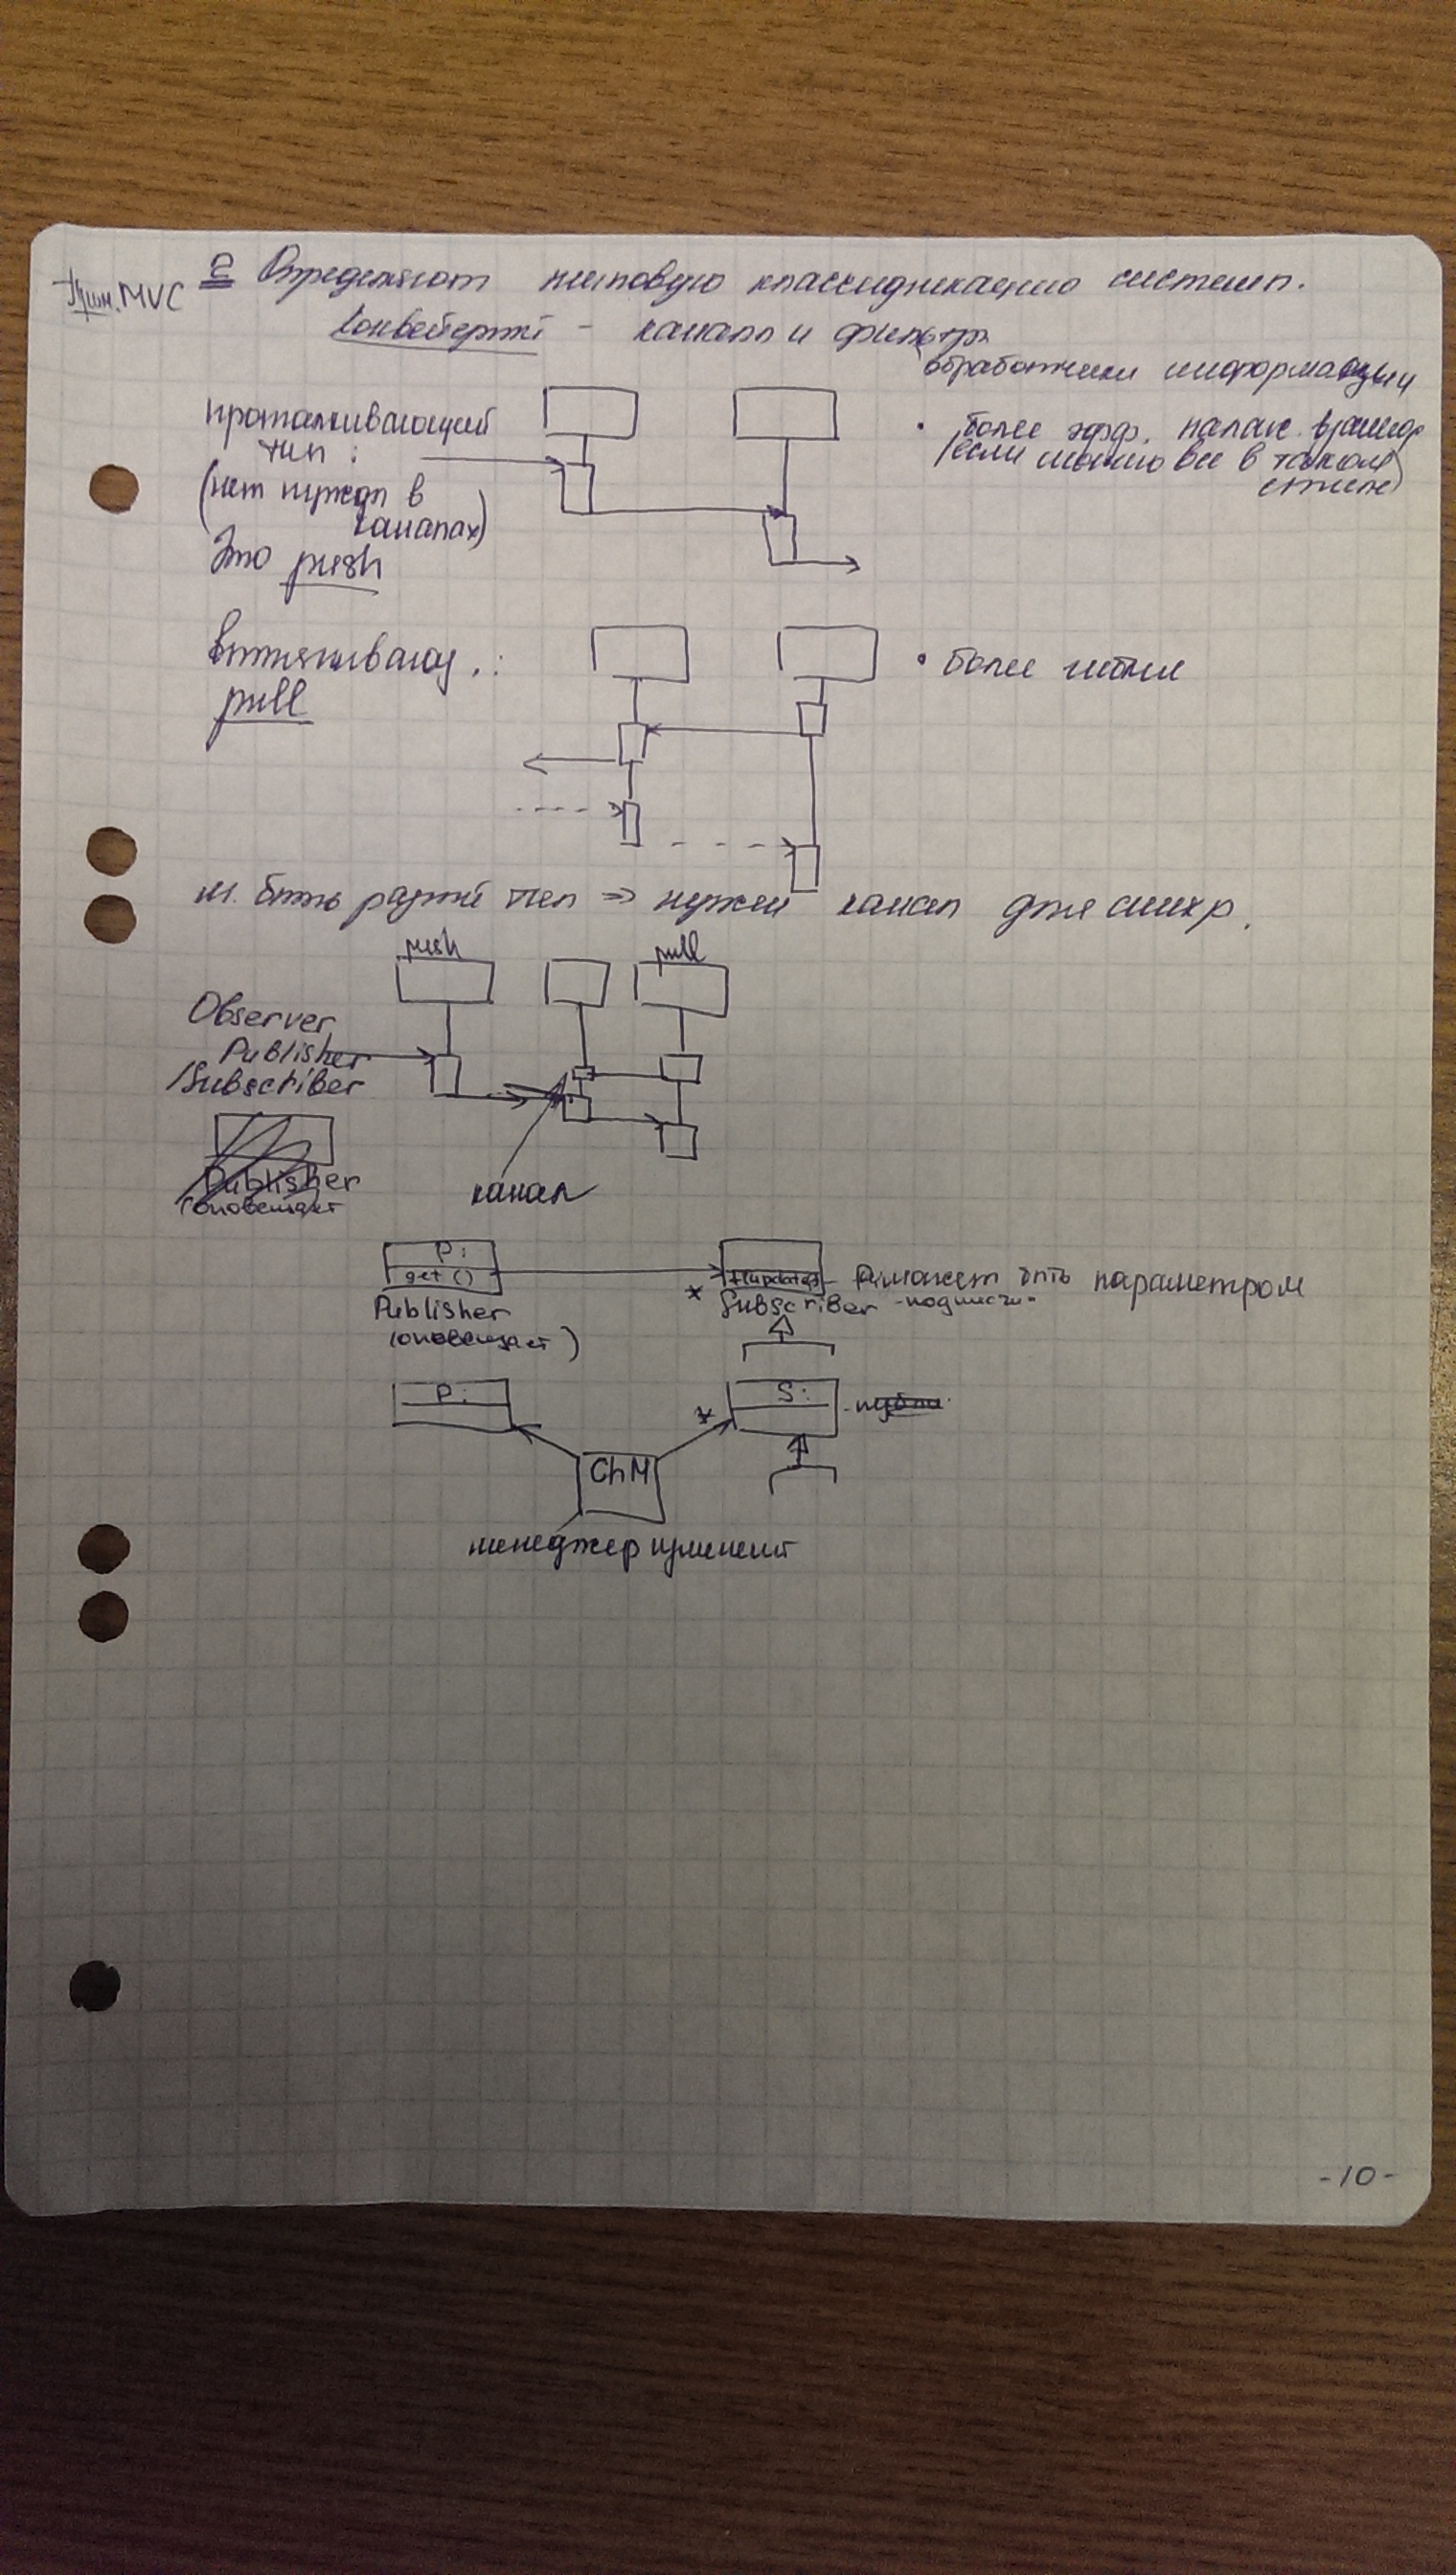 Прим. MVC
Определяют типовую классификацию системы.
Конвейеры - каналы и фильтры
обработчики информации
проталкивающий
тип :
(нет нужды в
каналах)
Это push
• более эфф.
(если можно все в таком
стиле)
вытягивающ. :
pull
• более гибкие
м. быть разный тип ⇒ нужен канал для синхр.
push pull
Observer
Publisher
/Subscriber
Publisher
(оповещает
канал
P:
get ()
Publisher
(оповещает)
+update()
Subscriber - подписч. -
может быть параметром
P:
S:
*
*
ChM
менеджер изменений
-10-